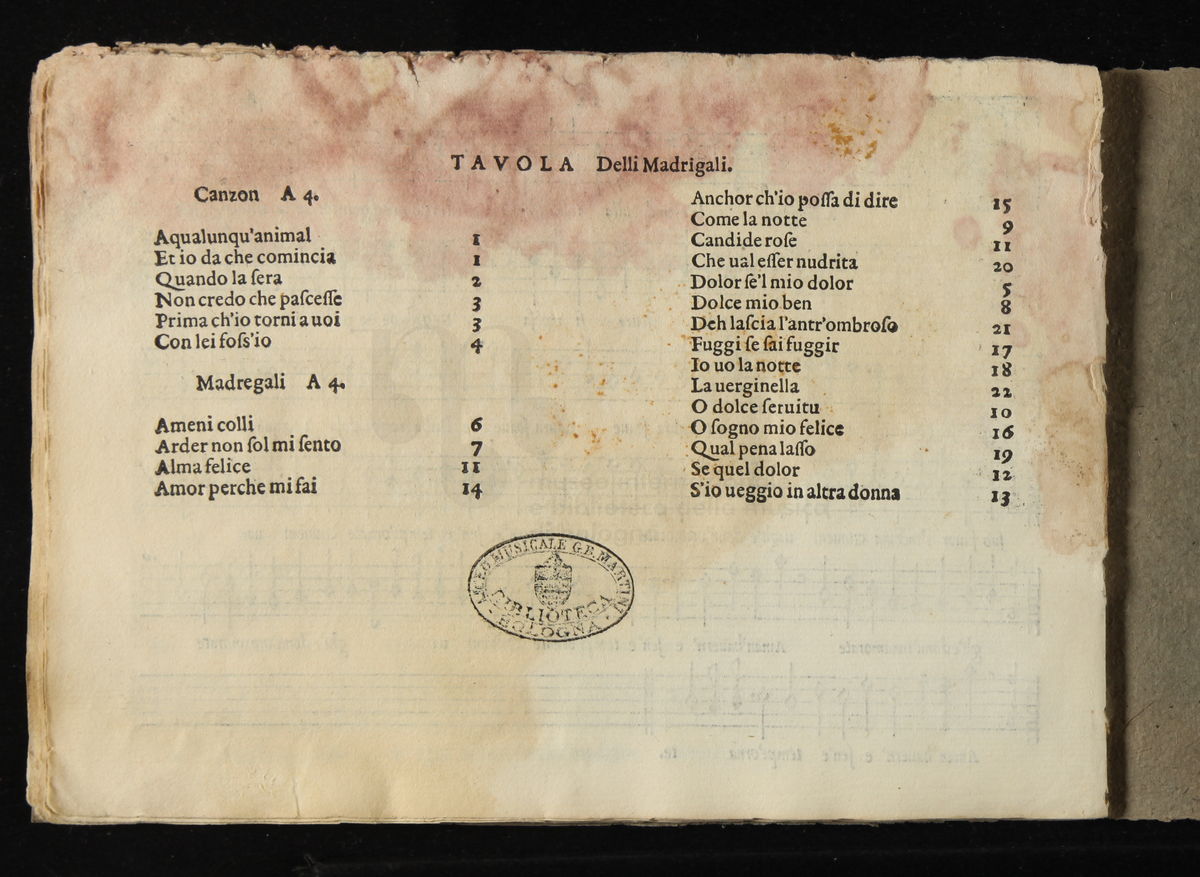 TAVOLA Delli Madrigali.
Canzon A 4.
Aqualunqu'animal 1
Et io da che comincia 1
Quando la ſera 2
Non credo che paſceſſe 3
Prima ch'io torni a uoi 3
Con lei foſs'io 4
Madregali A 4.
Ameni colli 6
Arder non ſol mi ſento 7
Alma felice 11
Amor perche mi fai 14
Anchor ch'io poſſa di dire 15
Come la notte 9
Candide roſe 11
Che ual eſſer nudrita 20
Dolor ſe'l mio dolor 5
Dolce mio ben 8
Deh laſcia l'antr'ombroſo 21
Fuggi ſe ſai fuggir 17
Io uo la notte 18
La uerginella 22
O dolce ſeruitu 10
O ſogno mio felice 16
Qual pena laſſo 19
Se quel dolor 12
S'io ueggio in altra donna 13
LICEO MUSICALE G.B. MARTINI
BIBLIOTECA
BOLOGNA